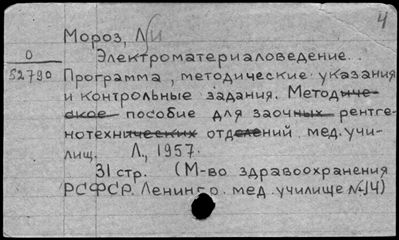 4
Мороз, Л
О
52790
Электроматериаловедение.
Программа, методические указания
и контрольные задания. Методиче-
ское пособие для заочных рентге-
нотехнических отделений мед. учи-
лищ. Л., 1957.
31 стр. (М-во здравоохранения
РСФСР. Ленингр. мед. училище №14)